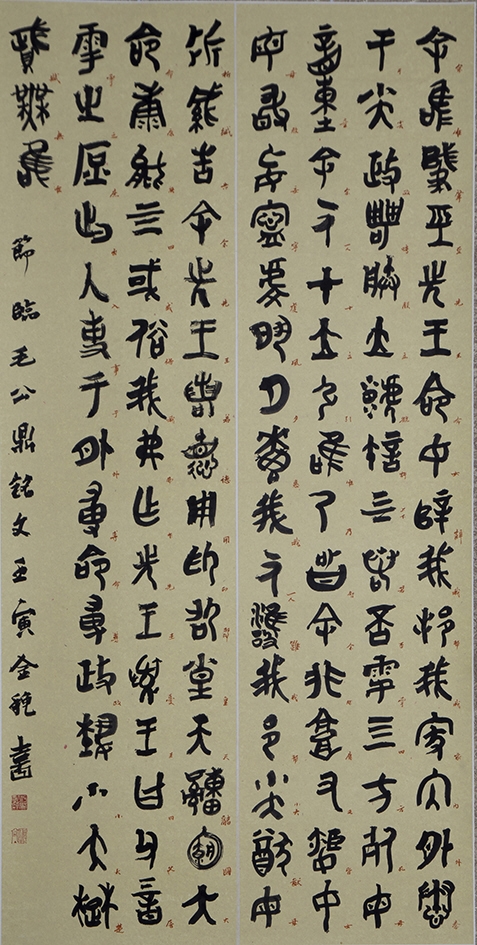 今唯肇巠先王命女辥我邦我家内外憃
于小大政屏朕立虩許上下若否雩四方死毋
童余一人才立弘唯乃智余非庸又昏女
毋敢妄寧虔夙夕惠我一人雝我邦小大猷毋
折緘告余先王若德用印卲皇天申圝大
命康能四或俗我弗乍先王憂王曰父厝
雩之庶出入事于外尃命尃政埶小大楚
賦無唯
節臨毛公鼎銘文壬寅金秋